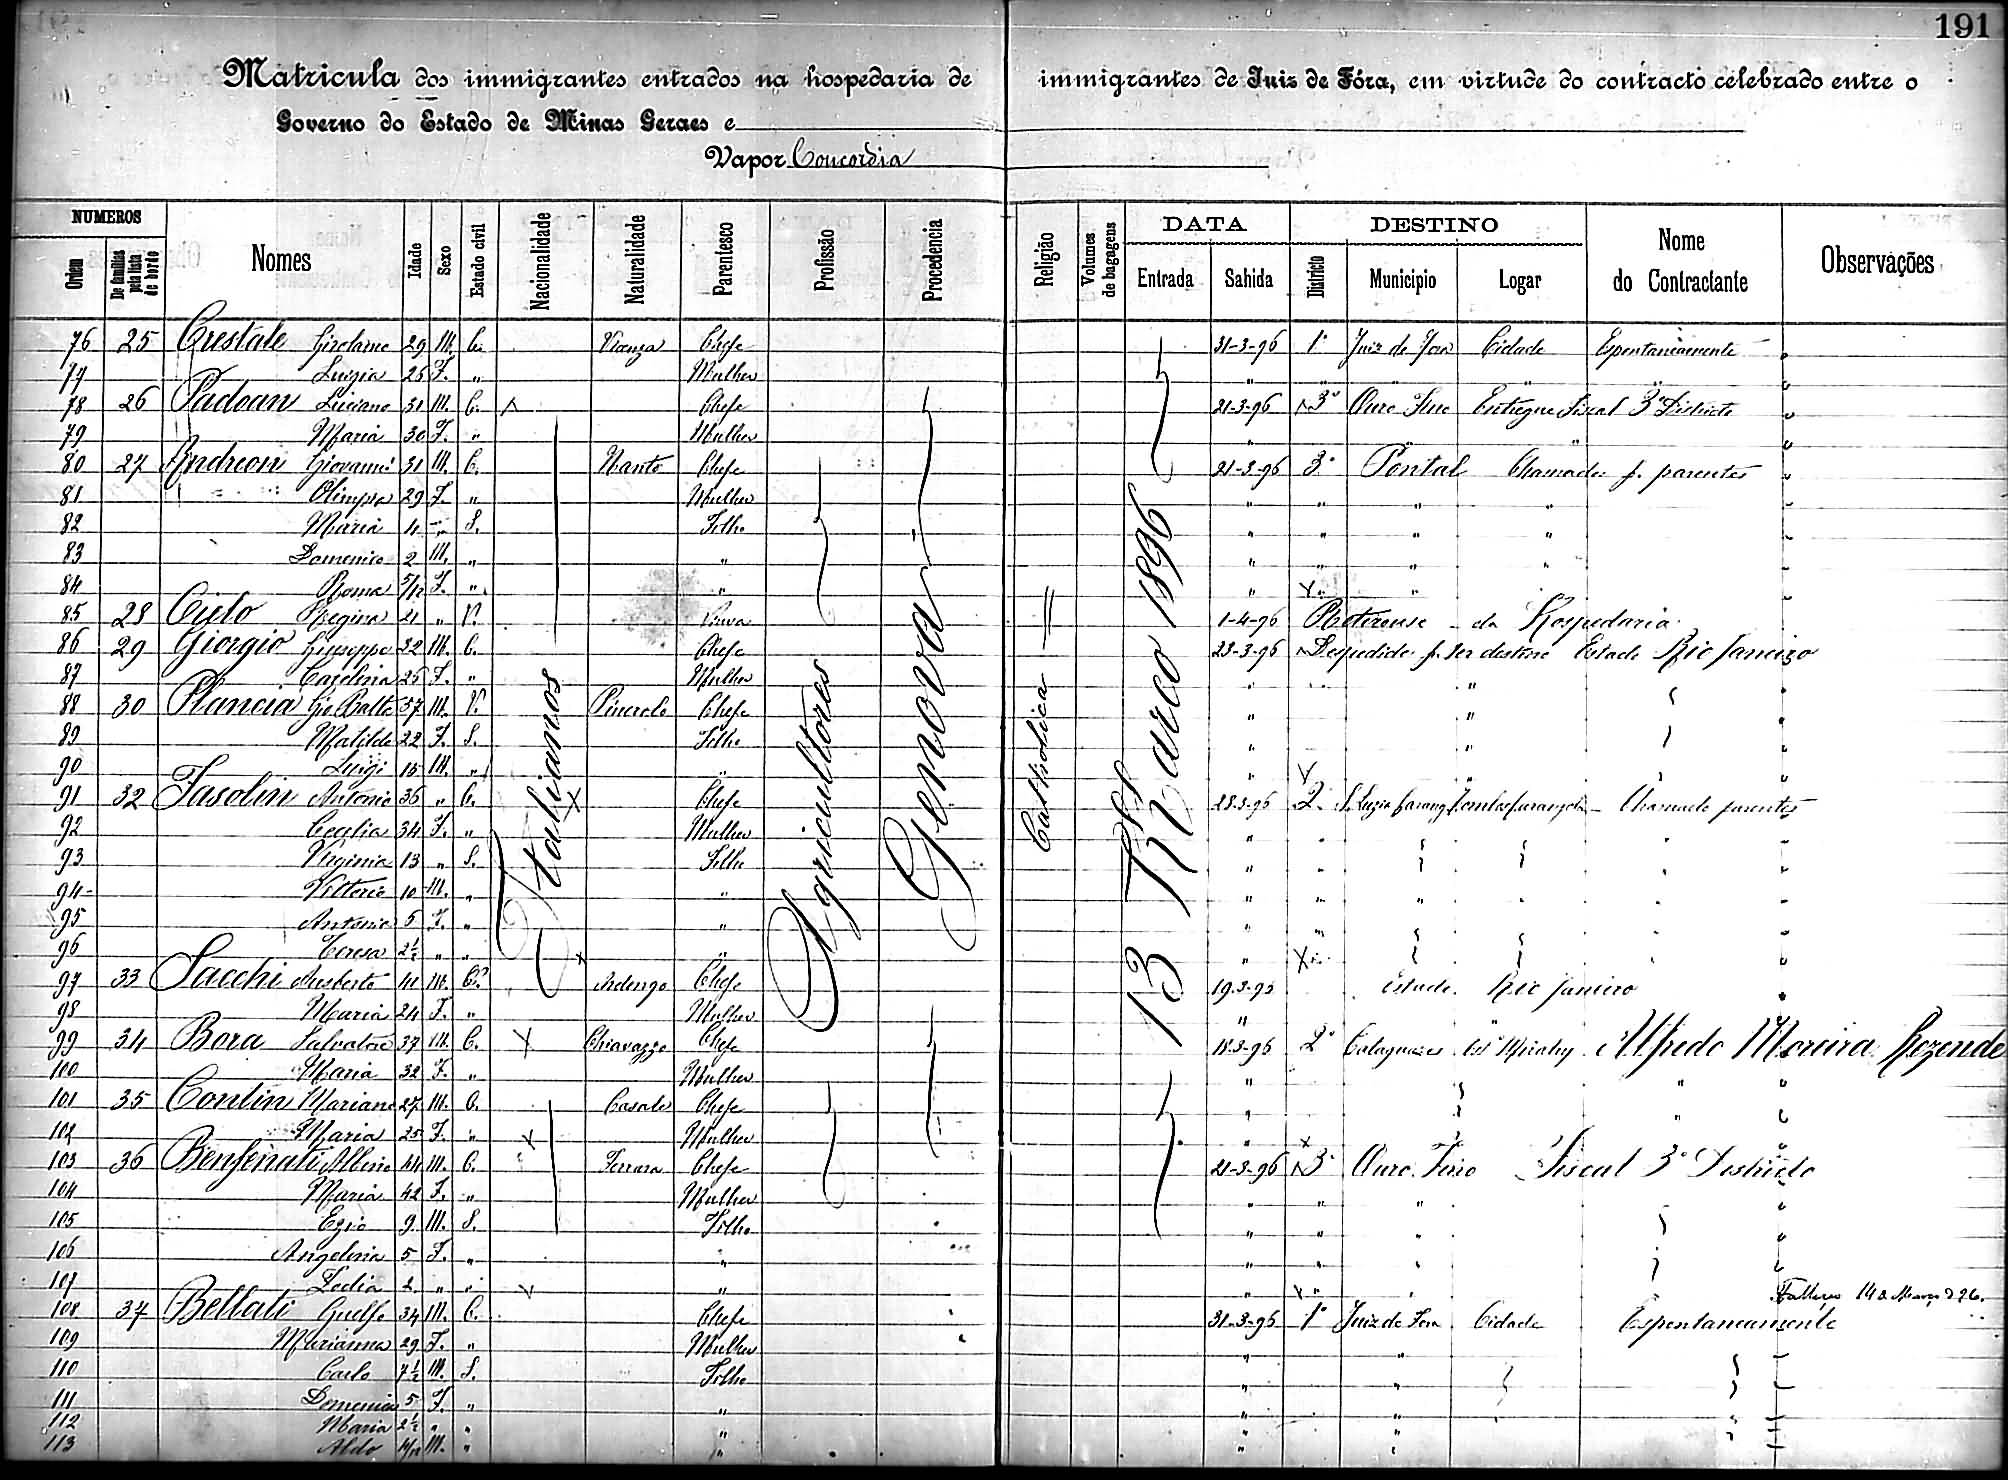 191
Matricula dos immigrantes entrados na hospedaria de immigrantes de Juiz de Fóra, em virtude do contracto celebrado entre o
Governo do Estado de Minas Geraes e
Vapor Concordia
NUMEROS Nomes Idade Sexo Estado civil Nacionalidade Naturalidade Parentesco Profissão Procedencia Religião Volumes de bagagens DATA DESTINO Nome do Contractante Observações
Ordem De familias pela lista de bordo Entrada Sahida Districto Municipio Logar
Italianos Agricultores Genova Catholica 13 Março 1896
76 25 Crestale Girolamo 29 M. C. Chefe 31-3-96 1º Juiz de Fora Cidade Espontaneamente
77 Luigia 26 F. " Mulher " " " " "
78 26 Padoan Luciano 31 M. C. Chefe 21-3-96 3º Ouro Fino Entregue Fiscal 3º Districto
79 Maria 30 F. " Mulher "
80 27 Andreon Giovanni 31 M. C. Nanto Chefe 21-3-96 3º Pontal Chamado p. parentes
81 Olimpia 29 F. " Mulher " " " "
82 Maria 4 " S. Filho " " " "
83 Domenico 2 M. " " " " " "
84 Roma 5/12 F. " " " " "
85 28 Cielo Regina 21 " V. 1-4-96 da Hospedaria
86 29 Giorgio Giuseppe 32 M. C. Chefe 23-3-96 Despedido p. ter destino Estado Rio Janeiro
87 Carolina 26 F. " Mulher " " "
88 30 Plancia Gio Batta 57 M. V. Pinerolo Chefe " "
89 Matilde 22 F. S. Filho " "
90 Luigi 15 M. " " " "
91 32 Fasolin Antonio 36 " C. Chefe 28-3-96 2º S. Luzia Carang. Tombos Carangola Chamado parentes
92 Cecilia 34 F. " Mulher "
93 Virginia 13 " S. Filho "
94 Vittorio 10 M. " " " " " "
95 Antonia 5 F. " " " "
96 Teresa 2½ " " " "
97 33 Sacchi 41 M. C. Chefe 19-3-96 Estado Rio Janeiro
98 Maria 24 F. " Mulher "
99 34 Bora Salvatore 37 M. C. Chiavazzo Chefe 18-3-96 2º Cataguazes Alfredo Moreira Rezende
100 Maria 32 F. " Mulher " "
101 35 Contin Mariano 27 M. C. Casale Chefe " "
102 Maria 25 F. " Mulher "
103 36 Benfenati Albino 44 M. C. Ferrara Chefe 21-3-96 3º Ouro Fino Fiscal 3º Districto
104 Maria 42 F. " Mulher " " "
105 Ezio 9 M. S. Filho " " "
106 Angelina 5 F. " " " " "
107 2 " " " " " "
108 37 Bellati Guelfo 34 M. C. Chefe 31-3-96 1º Juiz de Fora Cidade Espontaneamente
109 Marianna 29 F. " Mulher " "
110 Carlo 7½ M. S. Filho " "
111 Domenica 5 F. " " " "
112 Maria 2½ " " " " "
113 Aldo M. " " " "